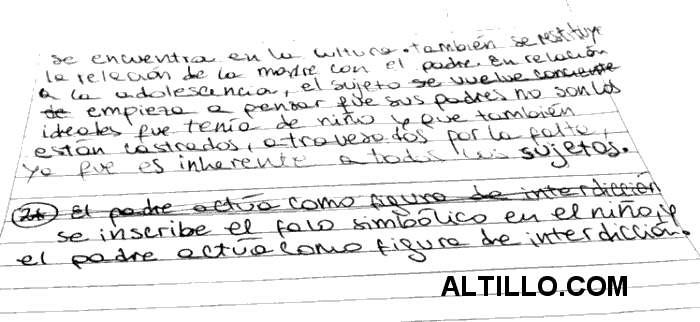 se encuentra en la cultura. también se restituye
la relación de la madre con el padre. En relación
a la adolescencia, el sujeto se vuelve conciente
de empieza a pensar que sus padres no son los
ideales que tenía de niño y que también
están castrados, atravesados por la falta,
ya que es inherente a todos los sujetos.
2* El padre actúa como figura de interdicción
se inscribe el falo simbólico en el niño, y
el padre actúa como figura de interdicción.
ALTILLO.COM